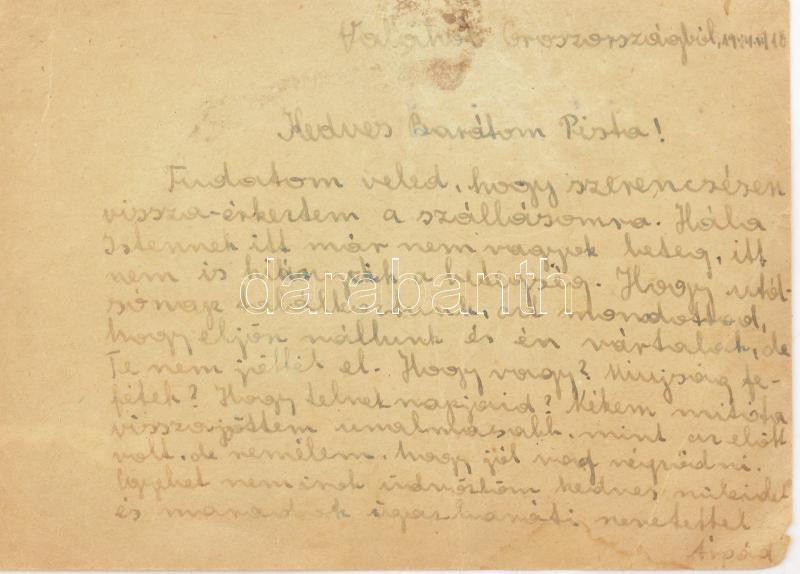 Valahol Oroszországból, 1944.
Kedves Barátom Pista!
Tudatom veled, hogy szerencsésen
vissza-érkeztem a szállásomra. Hála
Istennek itt már nem vagyok beteg, itt
nem is a betegség. Hogy utól-
sónap mondottad,
hogy eljön nállunk és én vártalak, de
Te nem jöttél el. Hogy vagy? Mi ujság fe-
fétek? Hogy telnek napjaid? Nékem mióta
visszajöttem unalmasabb, mint az elött
volt, de remélem, hogy jól
Egyebet nem írok üdvözlöm kedves
és maradok igaz baráti szeretettel
Árpád
darabanth